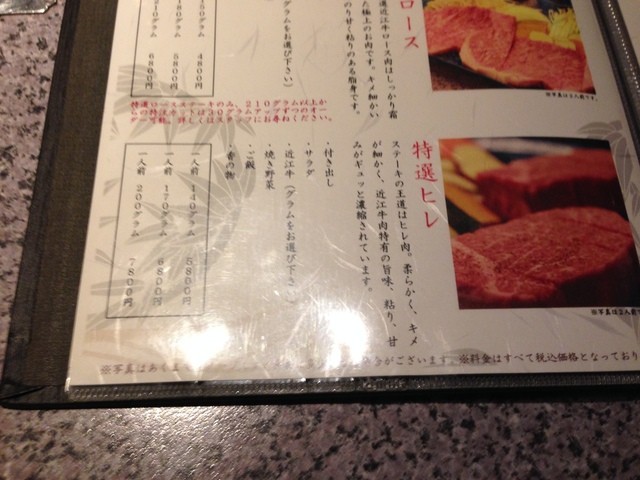 ロース
選近江牛ロース肉はしっかり霜
た極上のお肉です。キメ細かい
のり甘く粘りのある脂身です。
グラムをお選び下さい）
150グラム 4800円
180グラム 5800円
210グラム 6800円
※写真は2人前です。
特選ロースステーキのみ、210グラム以上か
らの特注カットは30グラムアップずつのオー
ダー可能。詳しくはスタッフにお尋ねください。
特選ヒレ
ステーキの王道はヒレ肉。柔らかく、キメ
が細かく、近江牛肉特有の旨味、粘り、甘
みがギュッと濃縮されています。
・付き出し
・サラダ
・近江牛（グラムをお選び下さい）
・焼き野菜
・ご飯
・香の物
一人前 140グラム 5800円
一人前 170グラム 6800円
一人前 200グラム 7800円
※写真は2人前
※写真はあくま
合がございます。※料金はすべて税込価格となっており